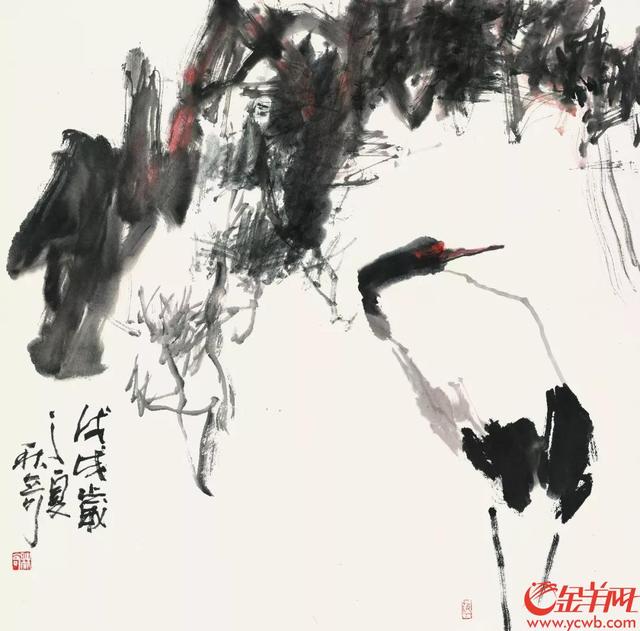 戊戌歲
之夏
金羊网
www.ycwb.com